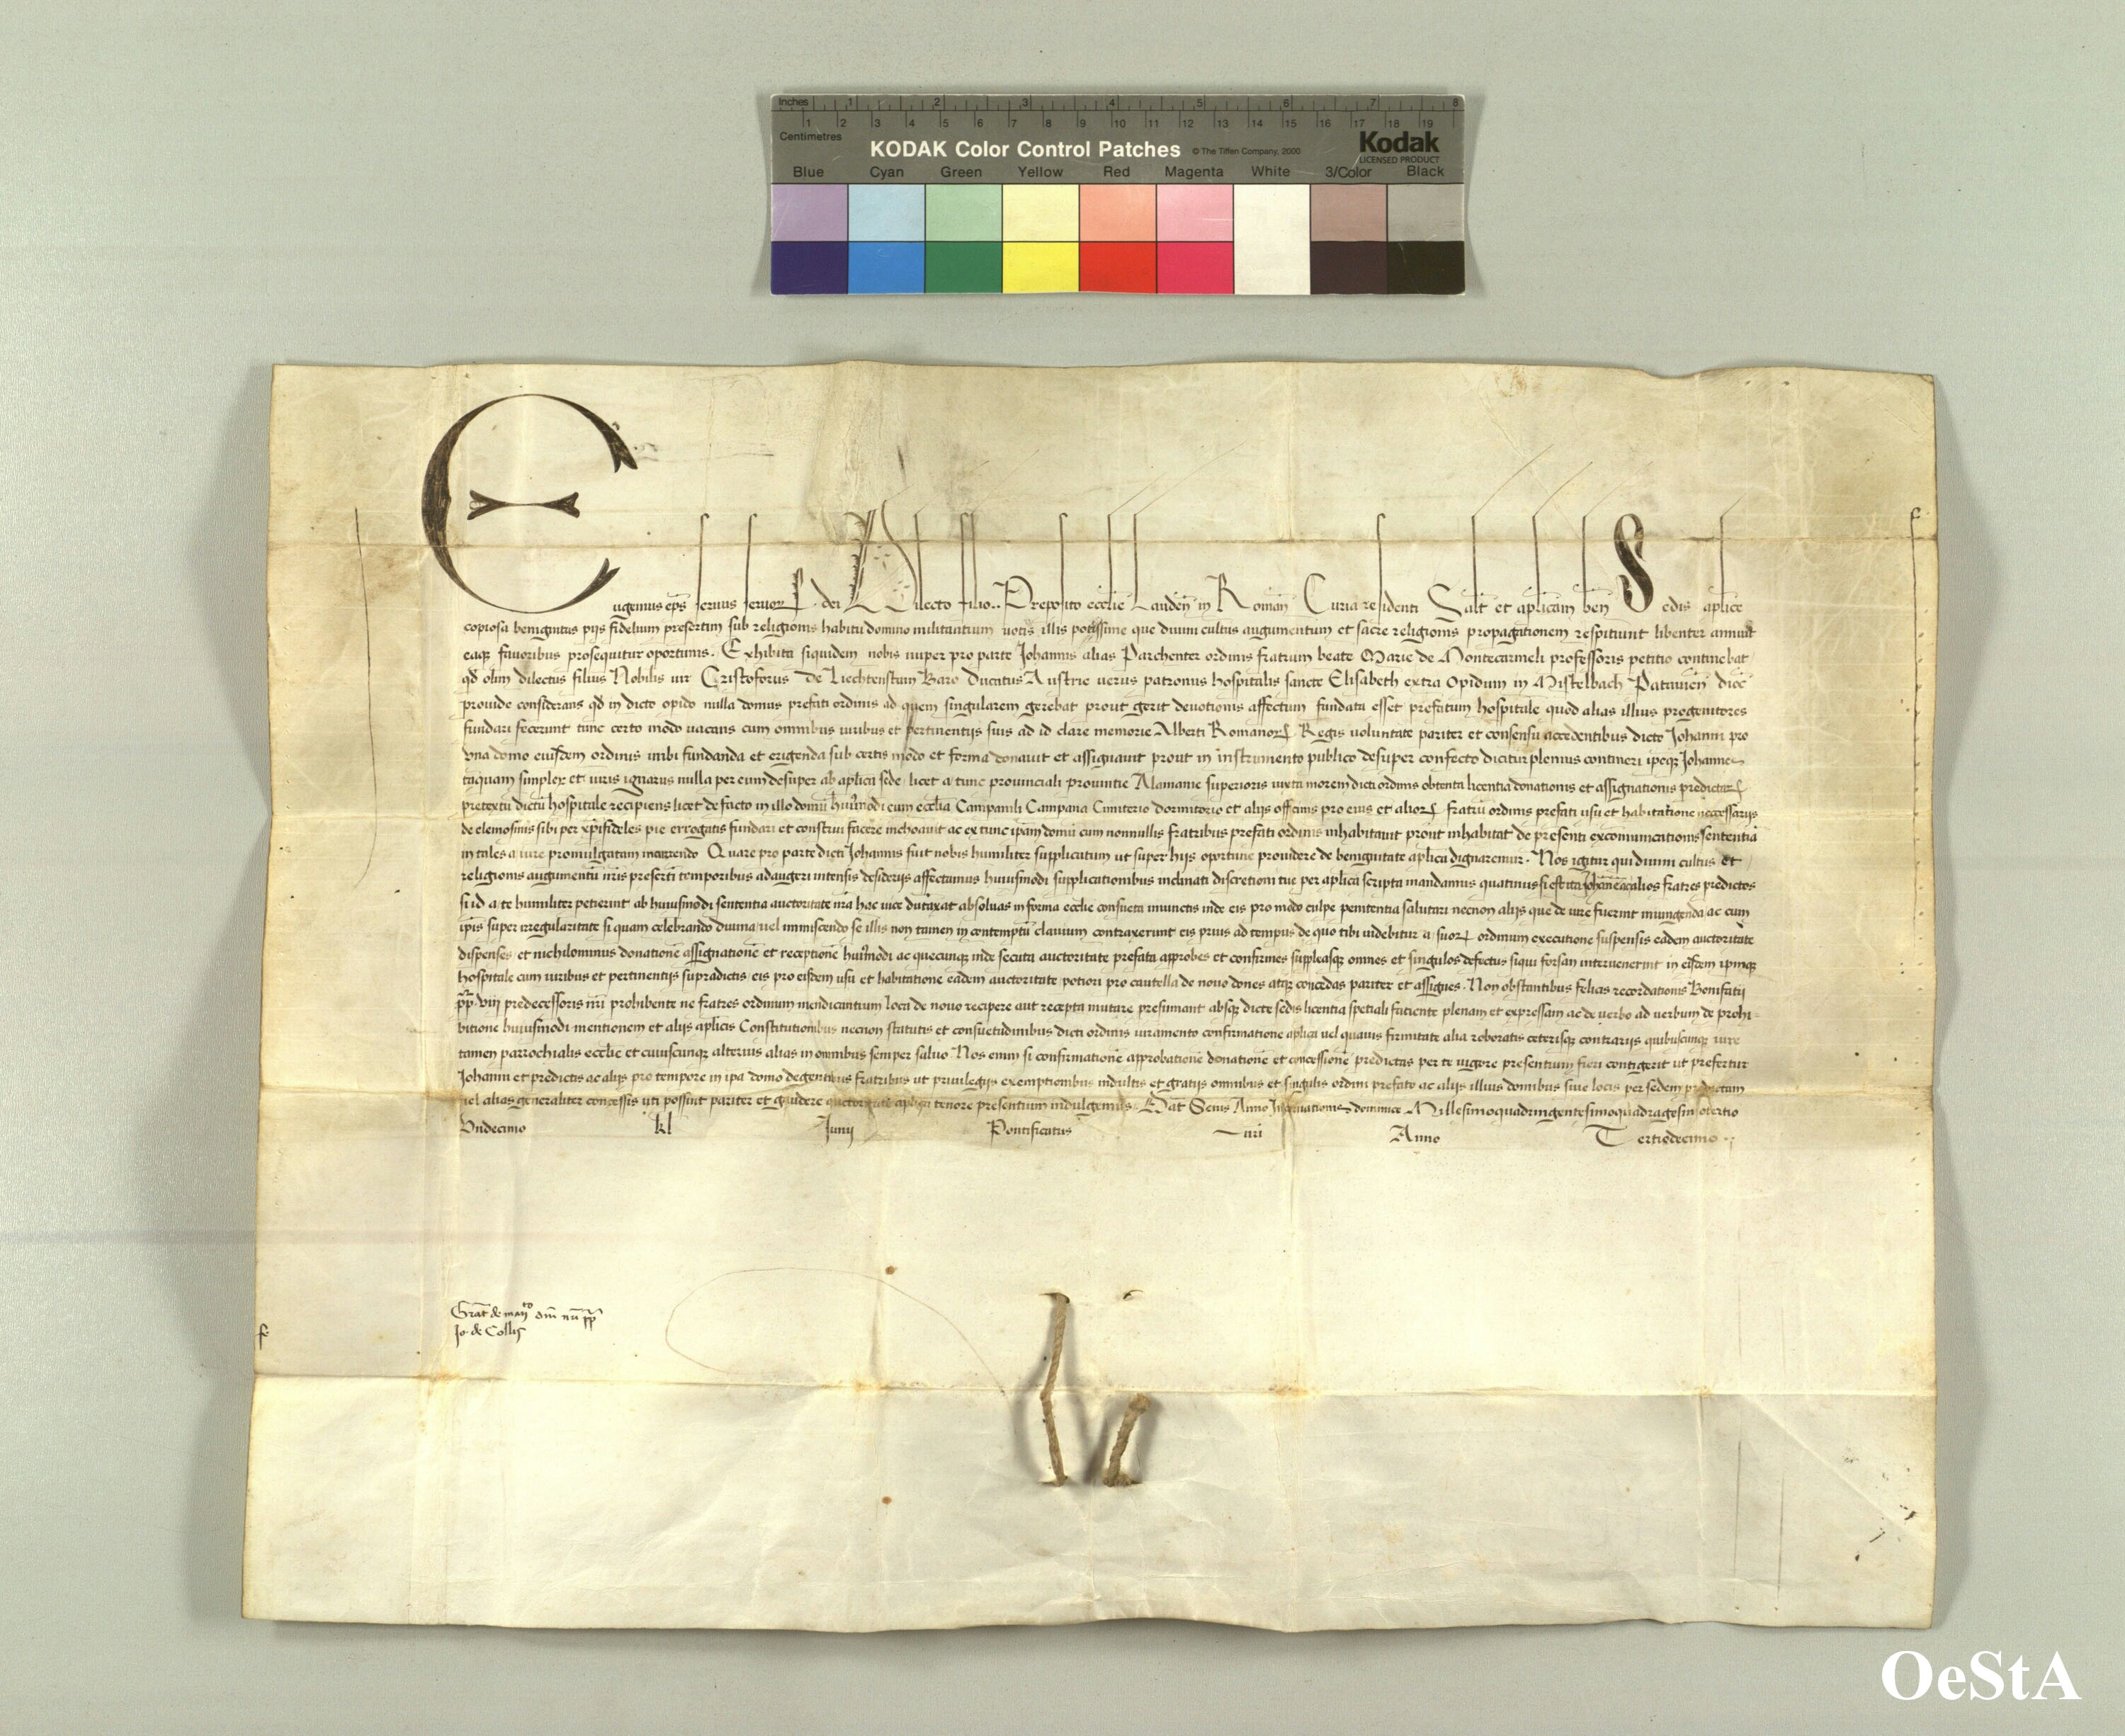 Inches 1 2 3 4 5 6 7 8
1 2 3 4 5 6 7 8 9 10 11 12 13 14 15 16 17 18 19
Centimetres
KODAK Color Control Patches © The Tiffen Company, 2000 Kodak
LICENSED PRODUCT
Blue Cyan Green Yellow Red Magenta White 3/Color Black
Eugenius ep̄s seruus seruoꝝ dei Dilecto filio.. Preposito ecclīe Lauden̄ in Roman̄ Curia residenti Salt̄ et aplicam ben̄ Sedis aplice
copiosa benignitas pijs fidelium presertim sub religionis habitu domino militantium uotis illis potissime que diuini cultus augumentum et sacre religionis propagationem respitiunt libenter annuit
eaqꝫ fauoribus prosequitur oportunis. Exhibita siquidem nobis nuper pro parte Johannis alias Parchenter ordinis fratrum beate Marie de Montecarmeli professoris petitio continebat
qd̄ olim dilectus filius Nobilis uir Cristoforus De Liechtenstain Baro Ducatus Austrie uerus patronus hospitalis sancte Elisabeth extra Opidum in Mistelbach Patauien̄ dioc̄
prouide considerans qd̄ in dicto opido nulla domus prefati ordinis ad quem singularem gerebat prout gerit deuotionis affectum fundata esset prefatum hospitale quod alias illius progenitores
fundari fecerunt tunc certo modo uacans cum omnibus iuribus et pertinentijs suis ad id clare memorie Alberti Romanoꝝ Regis uoluntate pariter et consensu accedentibus dicto Johanni pro
Vna domo eiusdem ordinis inibi fundanda et erigenda sub certis modo et forma donauit et assignauit prout in instrumento publico desuper confecto dicitur plenius contineri ipeqꝫ Johannes
taquam simplex et iuris ignarus nulla per eum desuper ab aplica sede licet a tunc prouinciali prouintie Alamanie superioris iuxta morem dicti ordinis obtenta licentia donationis et assignationis predictaꝝ
pretextu dictū hospitale recipiens licet de facto in illo domū hui9modi cum ecclīa Campanili Campana Cimiterio dormitorio et alijs officinis pro eius et alioꝝ fratrū ordinis prefati usu et habitatione neccessarijs
de elemosinis sibi per xp̄ifideles pie errogatis fundari et construi facere inchoauit ac ex tunc ipam domū cum nonnullis fratribus prefati ordinis inhabitauit prout inhabitat de presenti excomunicationis sententiā
in tales a iure promulgatam incurrendo Quare pro parte dicti Johannis fuit nobis humiliter supplicatum ut super hijs oportune prouidere de benignitate aplica dignaremur. Nos igitur qui diuini cultus et
religionis augumentū nr̄is presertī temporibus adaugeri intensis desiderijs affectamus huiusmodi supplicationibus inclinati discretioni tue per aplica scripta mandamus quatinus si est ita Johanē ac alios fratres predictos
si id a te humiliter petierint ab huiusmodi sententia auctoritate nr̄a hac uice dutaxat absoluas in forma ecclīe consueta iniunctis inde eis pro modo culpe penitentia salutari necnon alijs que de iure fuerint iniungenda ac cum
ipīs super irregularitate si quam celebrando diuina uel immiscendo se illis non tamen in contemptū clauium contraxerunt eis prius ad tempus de quo tibi uidebitur a suoꝝ ordinum executione suspensis eadem auctoritate
dispenses et nichilominus donationē assignationē et receptionē hui9modi ac quecunqꝫ inde secuta auctoritate prefata approbes et confirmes suppleasqꝫ omnes et singulos defectus siqui forsan interuenerint in eisdem ipmqꝫ
hospitale cum iuribus et pertinentijs supradictis eis pro eisdem usu et habitatione eadem auctoritate potiori pro cautella de nouo dones atqꝫ concedas pariter et assignes. Non obstantibus felicis recordationis Bonifatij
pp̄. viij predecessoris nr̄i prohibente ne fratres ordinum mendicantium loca de nouo recipere aut recepta mutare presumant absqꝫ dicte sedis licentia spetiali fatiente plenam et expressam ac de uerbo ad uerbum de prohi-
bitione huiusmodi mentionem et alijs aplicis Constitutionibus necnon statutis et consuetudinibus dicti ordinis iuramento confirmatione aplica uel quauis firmitate alia roboratis ceterisqꝫ contrarijs quibuscunqꝫ iure
tamen parrochialis ecclīe et cuiuscunqꝫ alterius alias in omnibus semper saluo Nos enim si confirmationē approbationē donationē et concessionē predictas per te uigore presentium fieri contigerit ut prefertur
Johanni et predictis ac alijs pro tempore in ipa domo degentibus fratribus ut priuilegijs exemptionibus indultis et gratijs omnibus et singulis ordini prefato ac alijs illius domibus siue locis per sedem predictam
uel alias generaliter concessis uti possint pariter et gaudere auctoritate aplica tenore presentium indulgemus. Dat̄ Senis Anno Incarnationis dominice Millesimoquadringentesimoquadragesimotertio
Vndecimo kl Junij Pontificatus nr̄i Anno Tertiodecimo
Grat̄ de man̄to dn̄i nr̄i pp̄
Jo. de Collis
OeStA